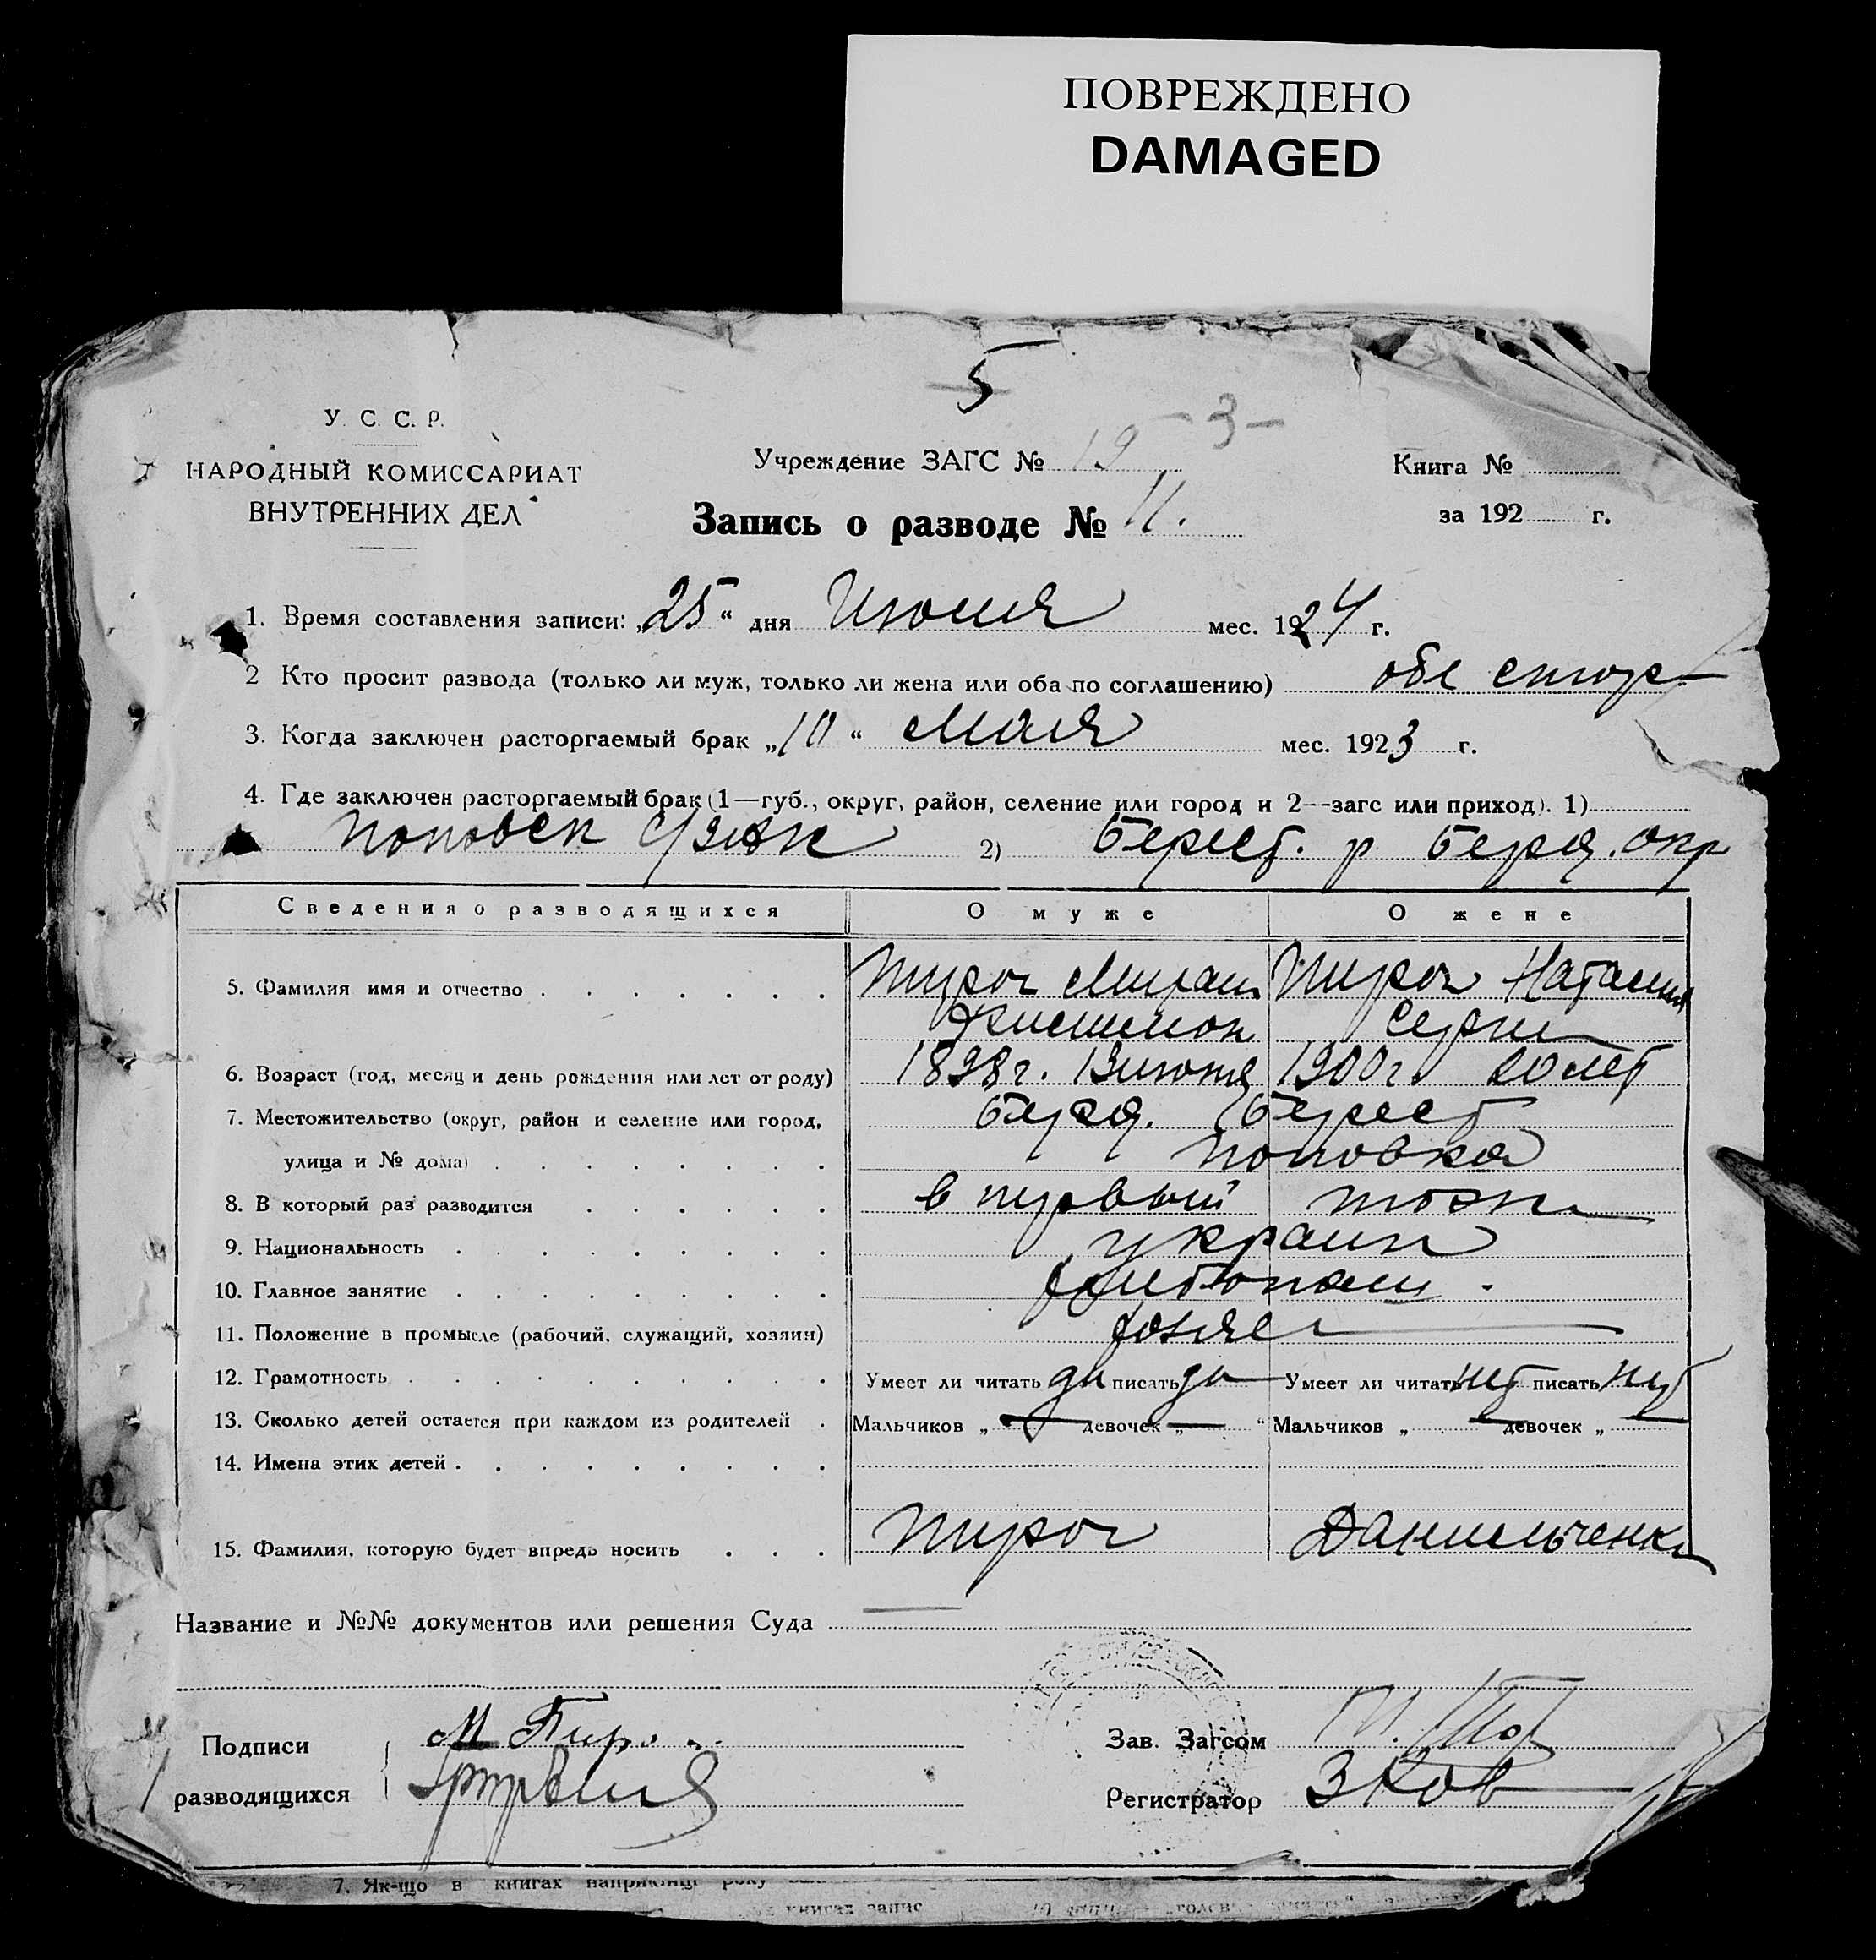 ПОВРЕЖДЕНО
DAMAGED
5
- 3 -
У. С. С. Р.
НАРОДНЫЙ КОМИССАРИАТ
ВНУТРЕННИХ ДЕЛ
Учреждение ЗАГС № 19
Книга №
Запись о разводе № 11.
за 192 г.
1. Время составления записи: „25“ дня Июня мес. 1924 г.
2 Кто просит развода (только ли муж, только ли жена или оба по соглашению) обе стор
3. Когда заключен расторгаемый брак „10“ Мая мес. 1923 г.
4. Где заключен расторгаемый брак (1—губ., округ, район, селение или город и 2—загс или приход). 1)
поповск 2) Берест. р Берд. окр
Сведения о разводящихся О муже О жене
5. Фамилия имя и отчество Пирог Наталия
Серги
6. Возраст (год, месяц и день рождения или лет от роду) 1898 г. 13 июня 1900 г. 20 лет
7. Местожительство (округ, район и селение или город, Берд. Берест
улица и № дома) поповка
8. В который раз разводится в первый тоже
9. Национальность украин
10. Главное занятие хлебопаш.
11. Положение в промысле (рабочий, служащий, хозяин) хозяе
12. Грамотность Умеет ли читать да писать да Умеет ли читать нет писать нет
13. Сколько детей остается при каждом из родителей Мальчиков „ — девочек „ — “ Мальчиков „ — девочек „ —
14. Имена этих детей
15. Фамилия, которую будет впредь носить Пирог Данильченко
Название и №№ документов или решения Суда —
Подписи М Пиро Зав. Загсом
разводящихся Регистратор
7. Як-що в книгах наприкінці року
книгах запис